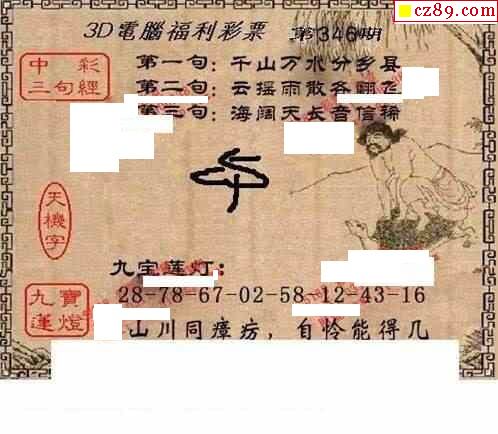 cz89.com
3D電腦福利彩票 第346期
中彩
三句經
第一句：千山万水分乡县
第二句：云摇雨散各翻飞
第三句：海阔天长音信稀
天機字
九宝莲灯：
九寶
蓮燈
28-78-67-02-58-12-43-16
山川同瘴疠，自怜能得几